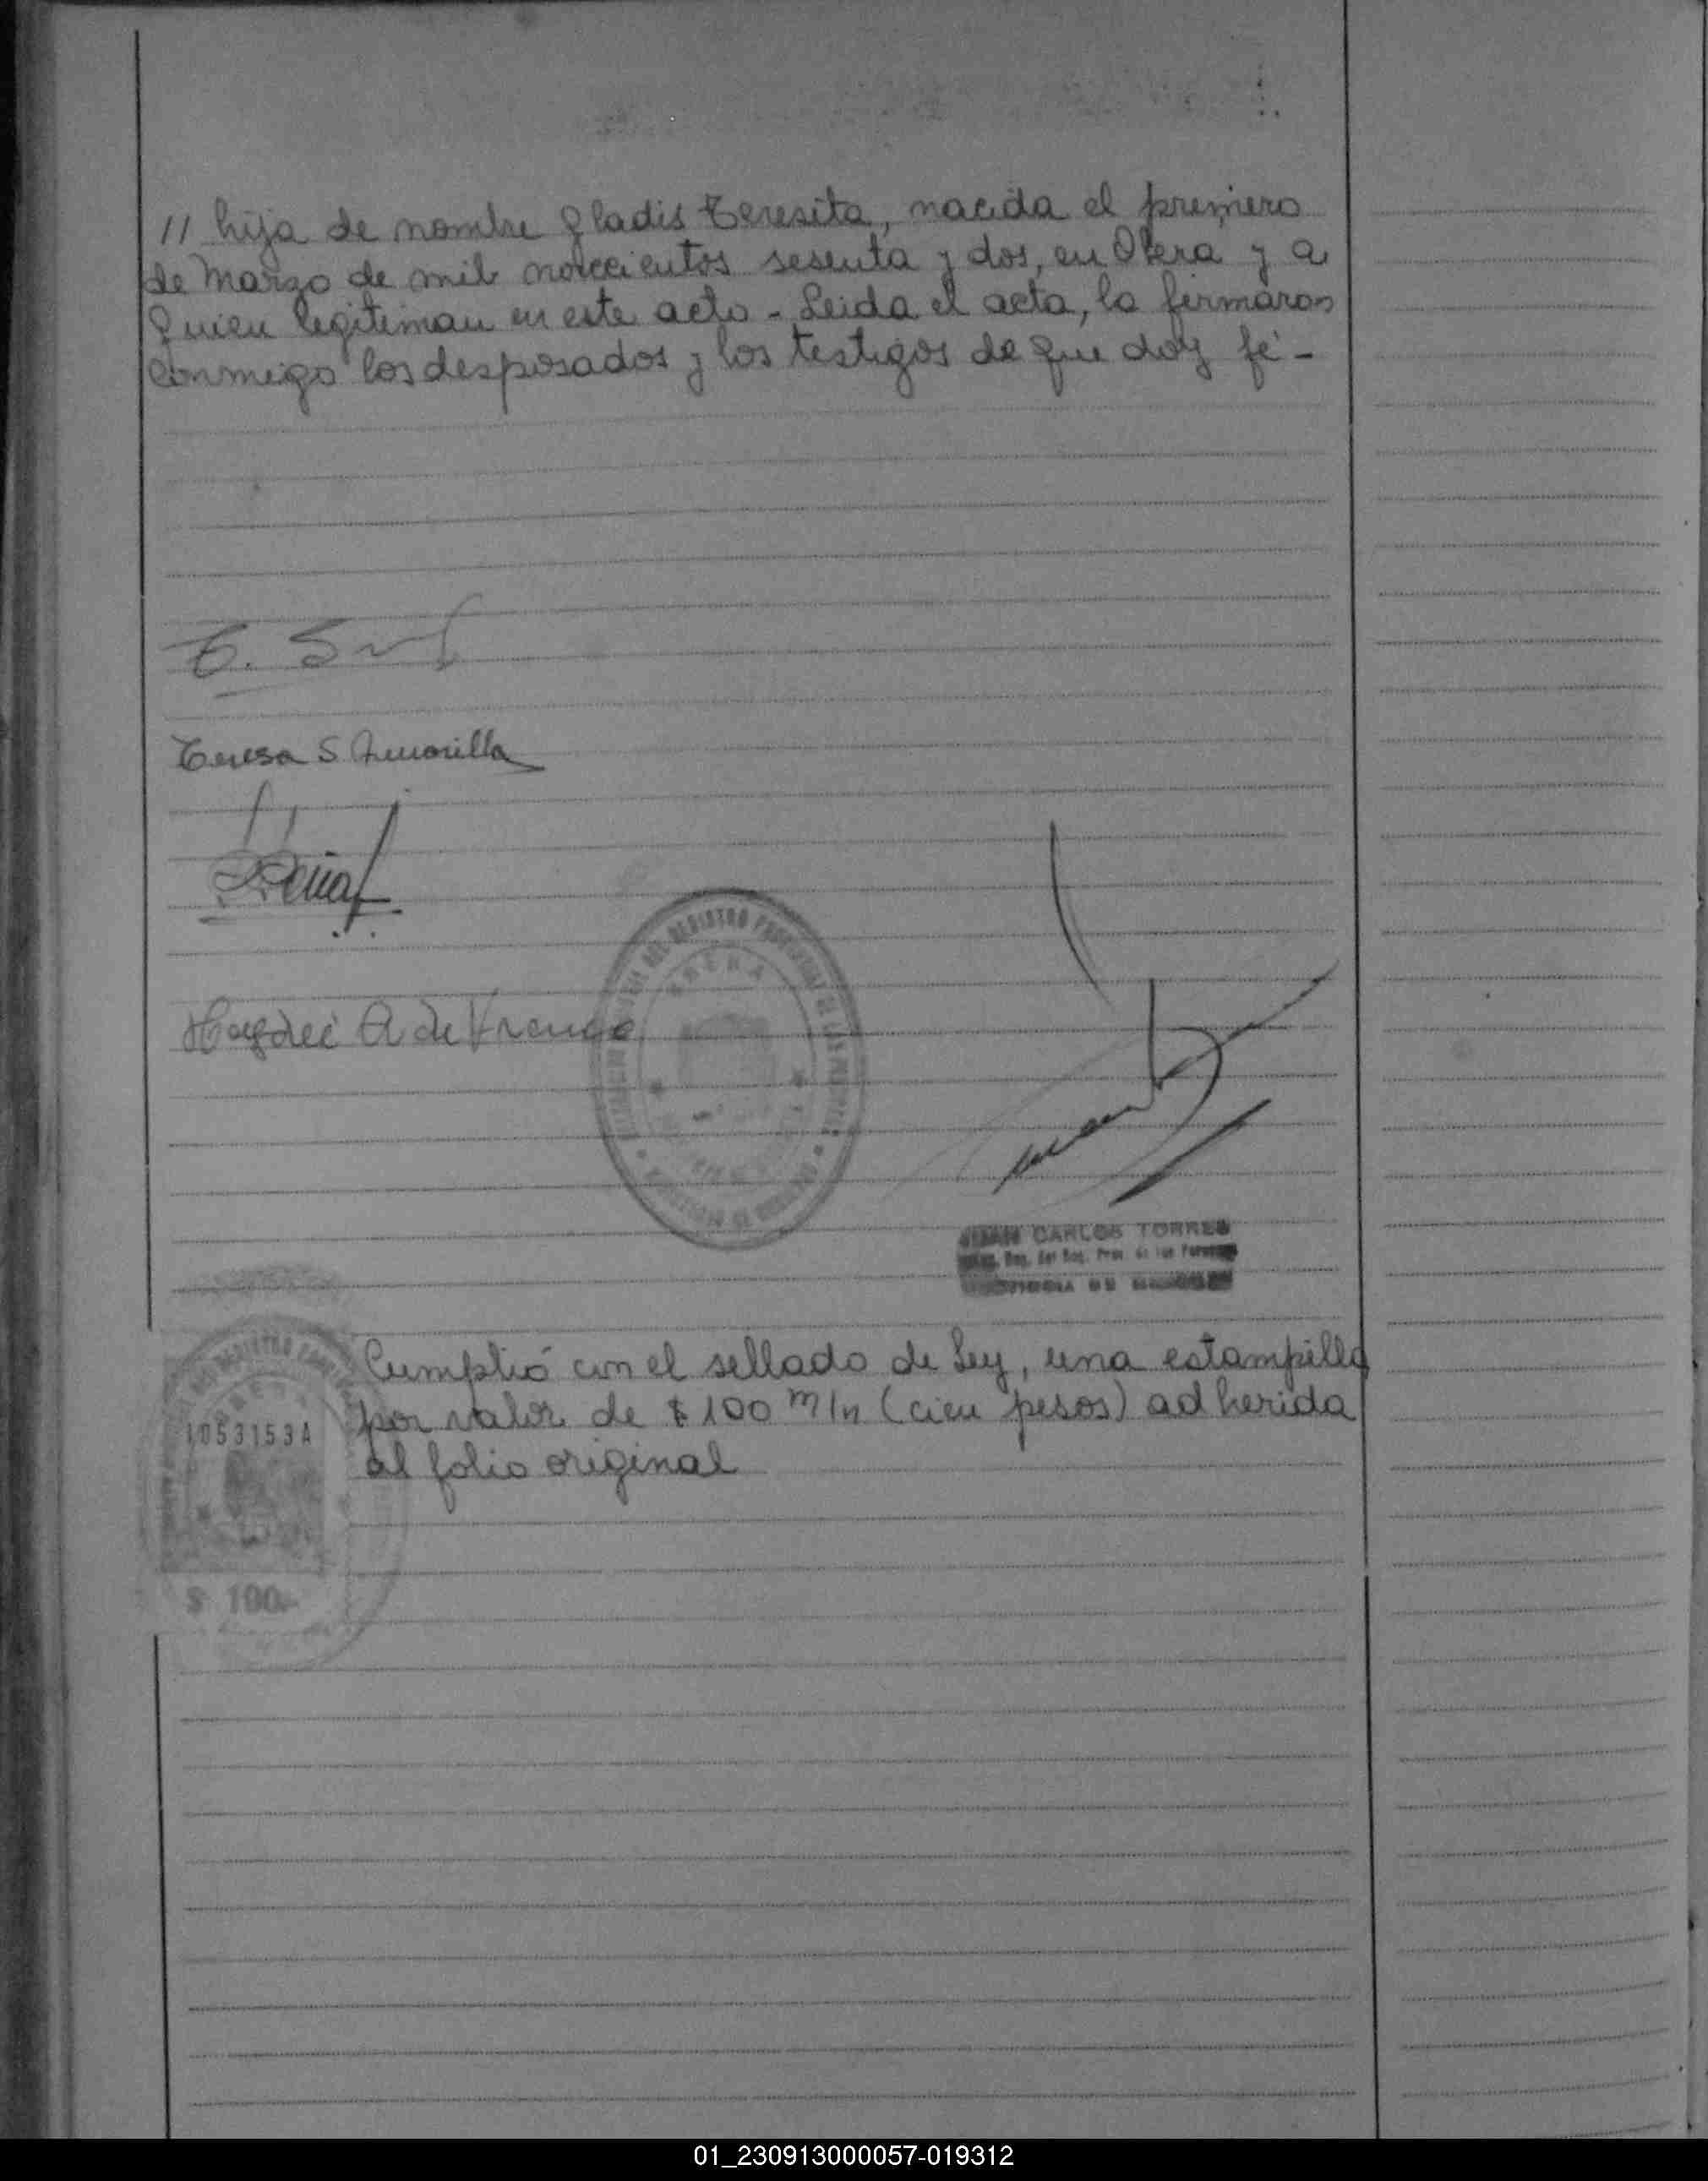 // hija de nombre Gladis Teresita, nacida el premiero
de Marzo de mil novecientos sesenta y dos, en Obera y a
Quien legitiman en este acto - Leida el acta, la firmaron
Conmigo los desposados y los testigos de que doy fé -
Teresa S.
Peña
Haydeé A de Franco
DEL REGISTRO PROVINCIAL DE LAS
OBERA
JUAN CARLOS TORRES
Cumplió con el sellado de Ley, una estampilla
1053153A
por valor de $ 100 m/n (cien pesos) adherida
al folio original
$ 100.-
01_230913000057-019312